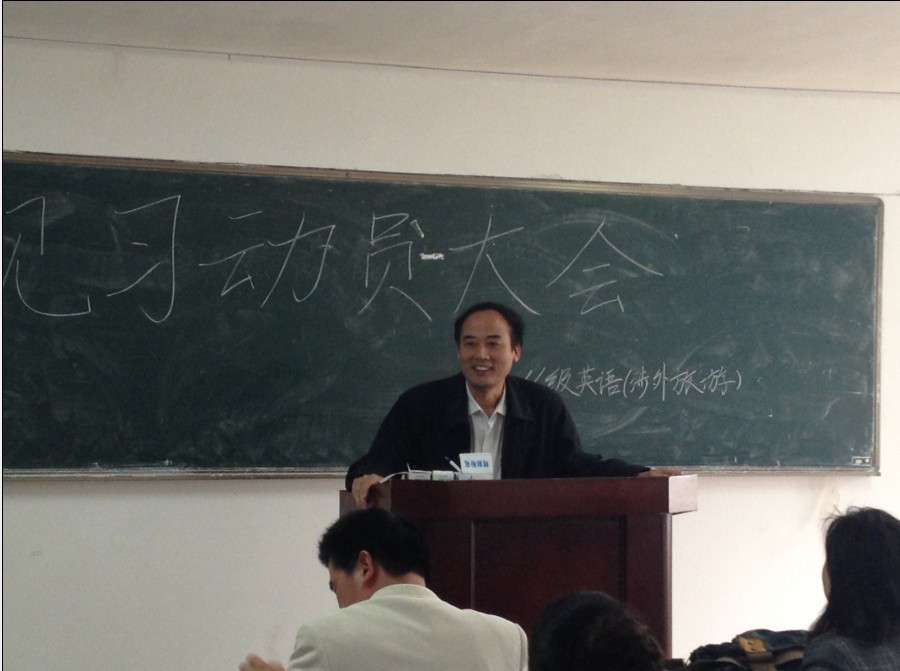 见习动员大会
11级英语(涉外旅游)